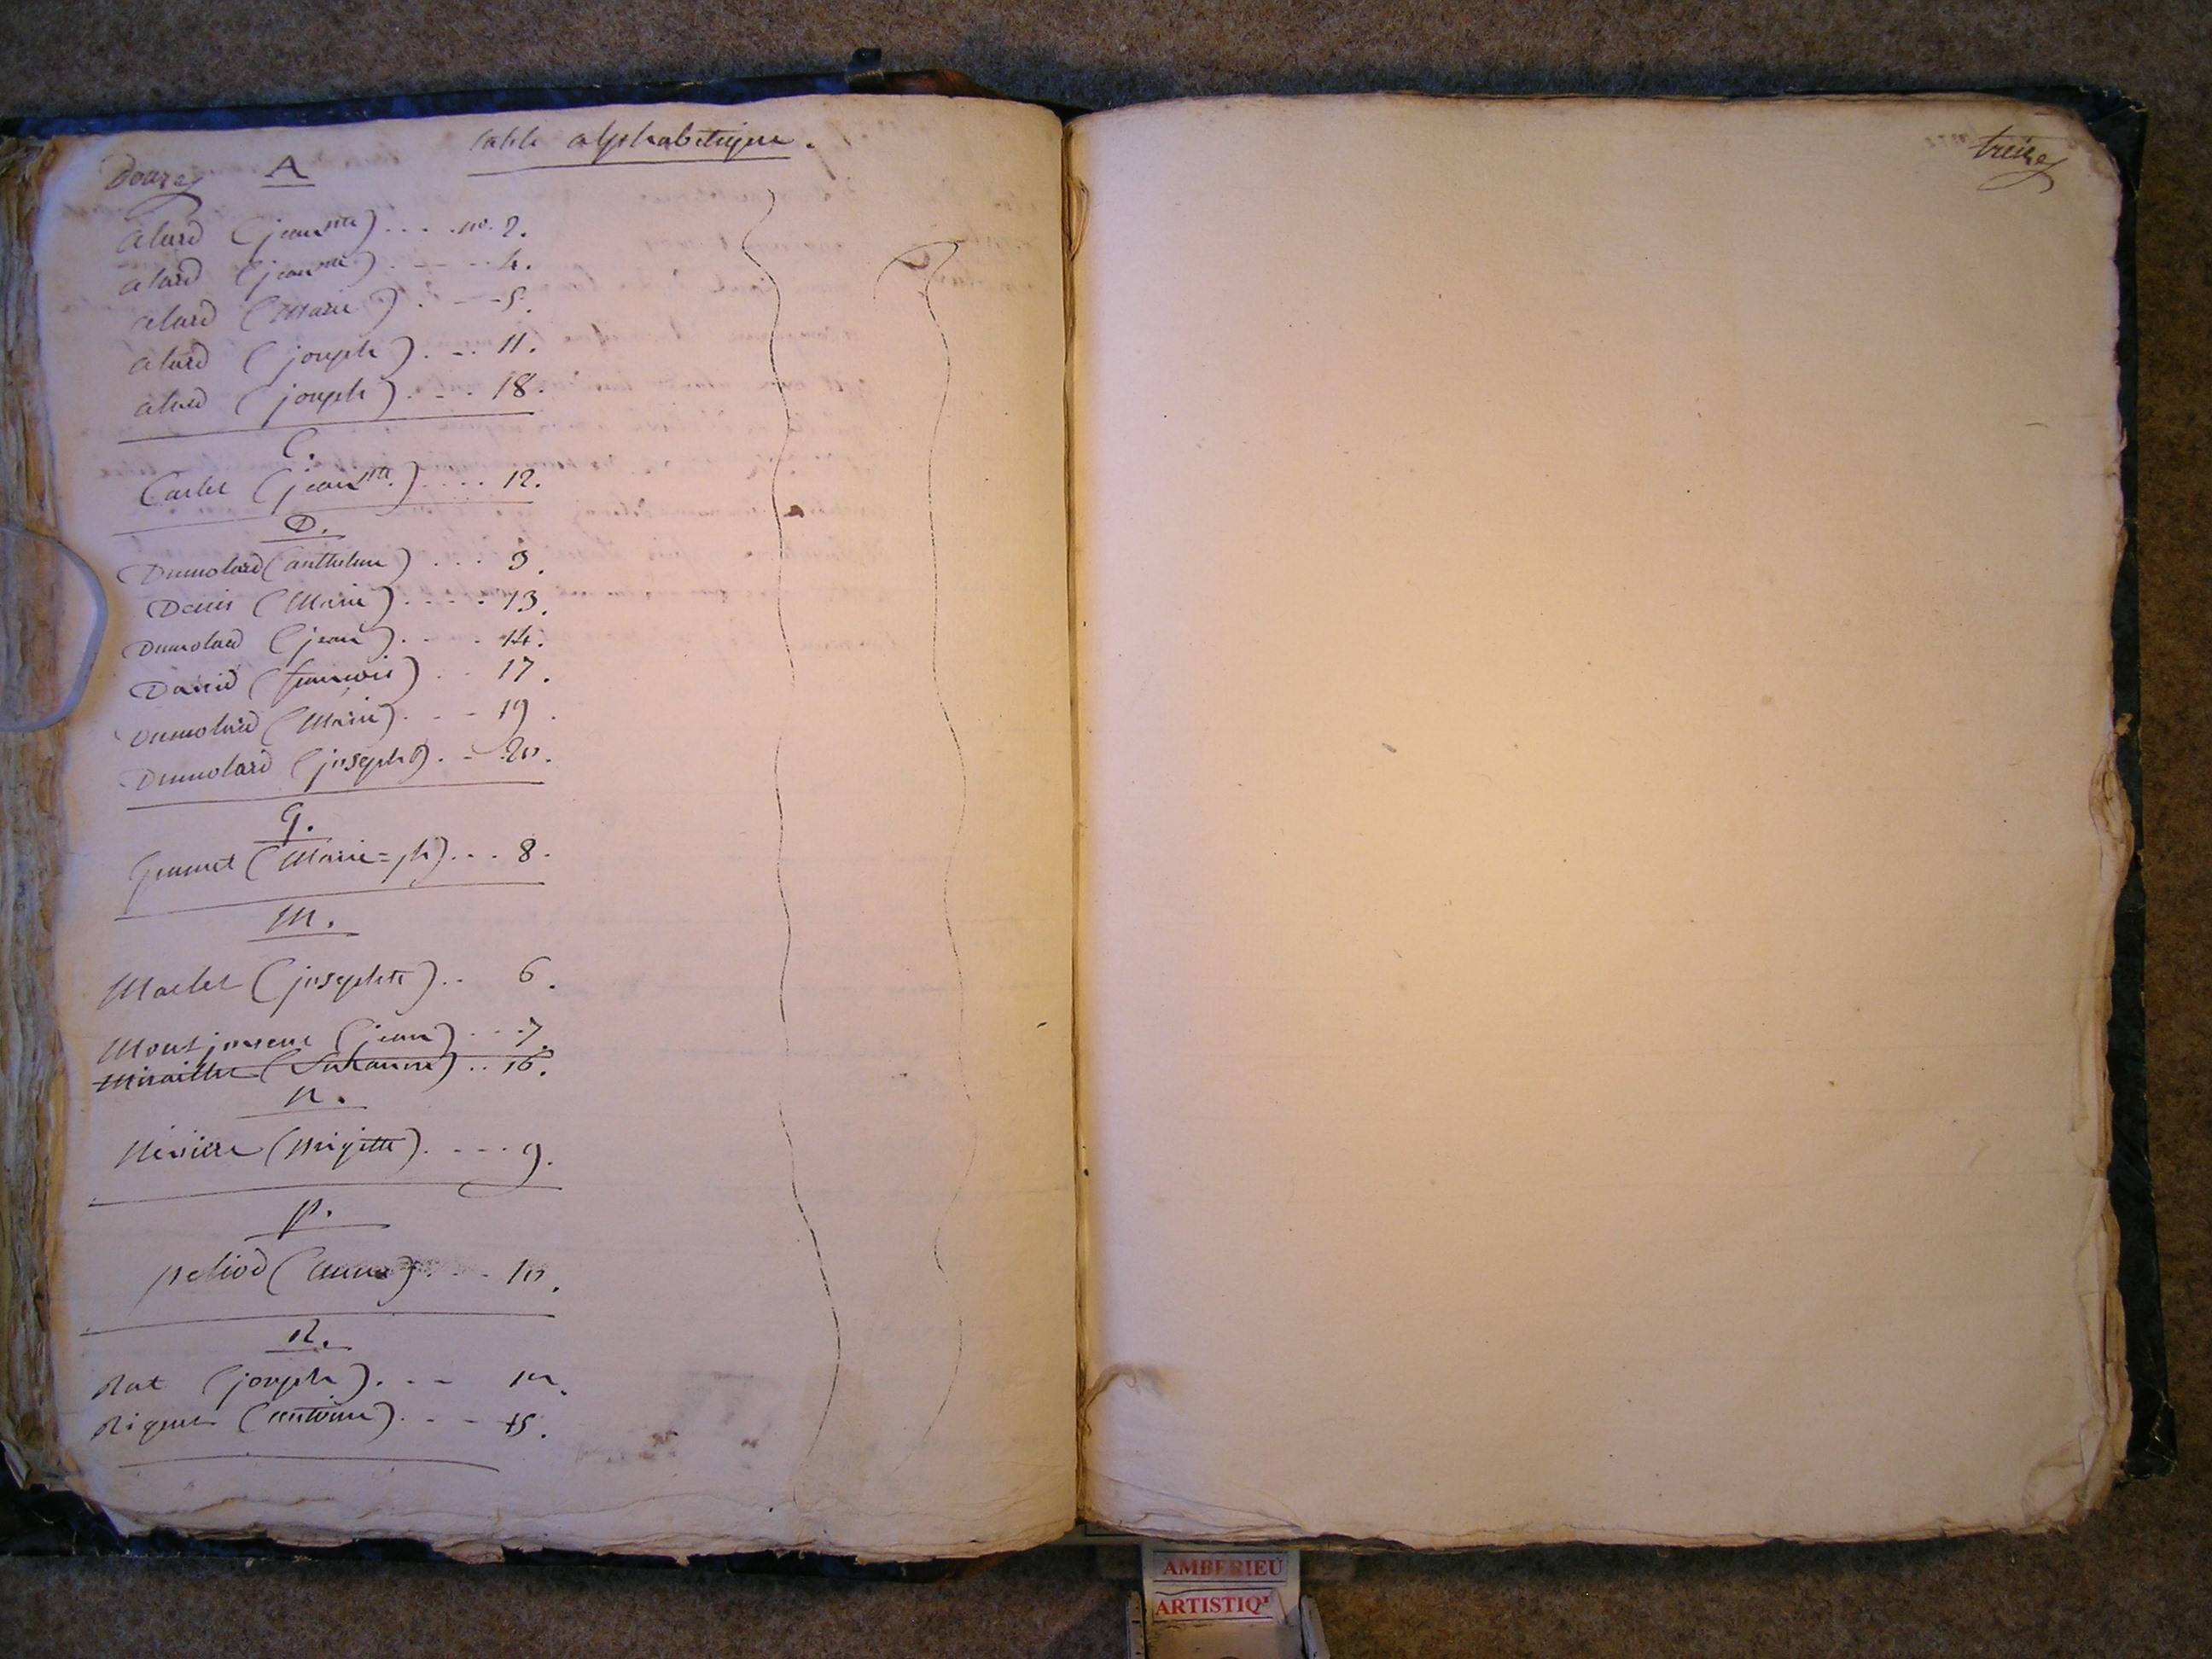 table alphabetique.
Douze
A
alard (jeanne) .... no. 2.
alard (jeanne) . — - - 4.
alard (Marie) . - - - 5.
alard (joseph) . - .. 11.
alard (joseph) . - - . 18.
C.
Carlet (jeanne.) .... 12.
D.
Dumolard (anthelme) .... 3.
Denis (Marie) . - - - . 13.
Dumolard (jean) . - - . 14.
David (francois) . . . 17.
Dumolard (Marie) . - - 19.
Dumolard (joseph) . - 20.
g.
(Marie=jh) ... 8.
M.
Marlet (josephte) .. 6.
(jean) . - - . 7.
Miraillet (Suzanne) .. 16.
n.
Nivière (Brigette) . - - - 9.
p.
peliod (anne) . - . - 10.
R.
Rat (joseph) . - -
(antoine) . - - 15.
treize
AMBERIEU
ARTISTIQ'